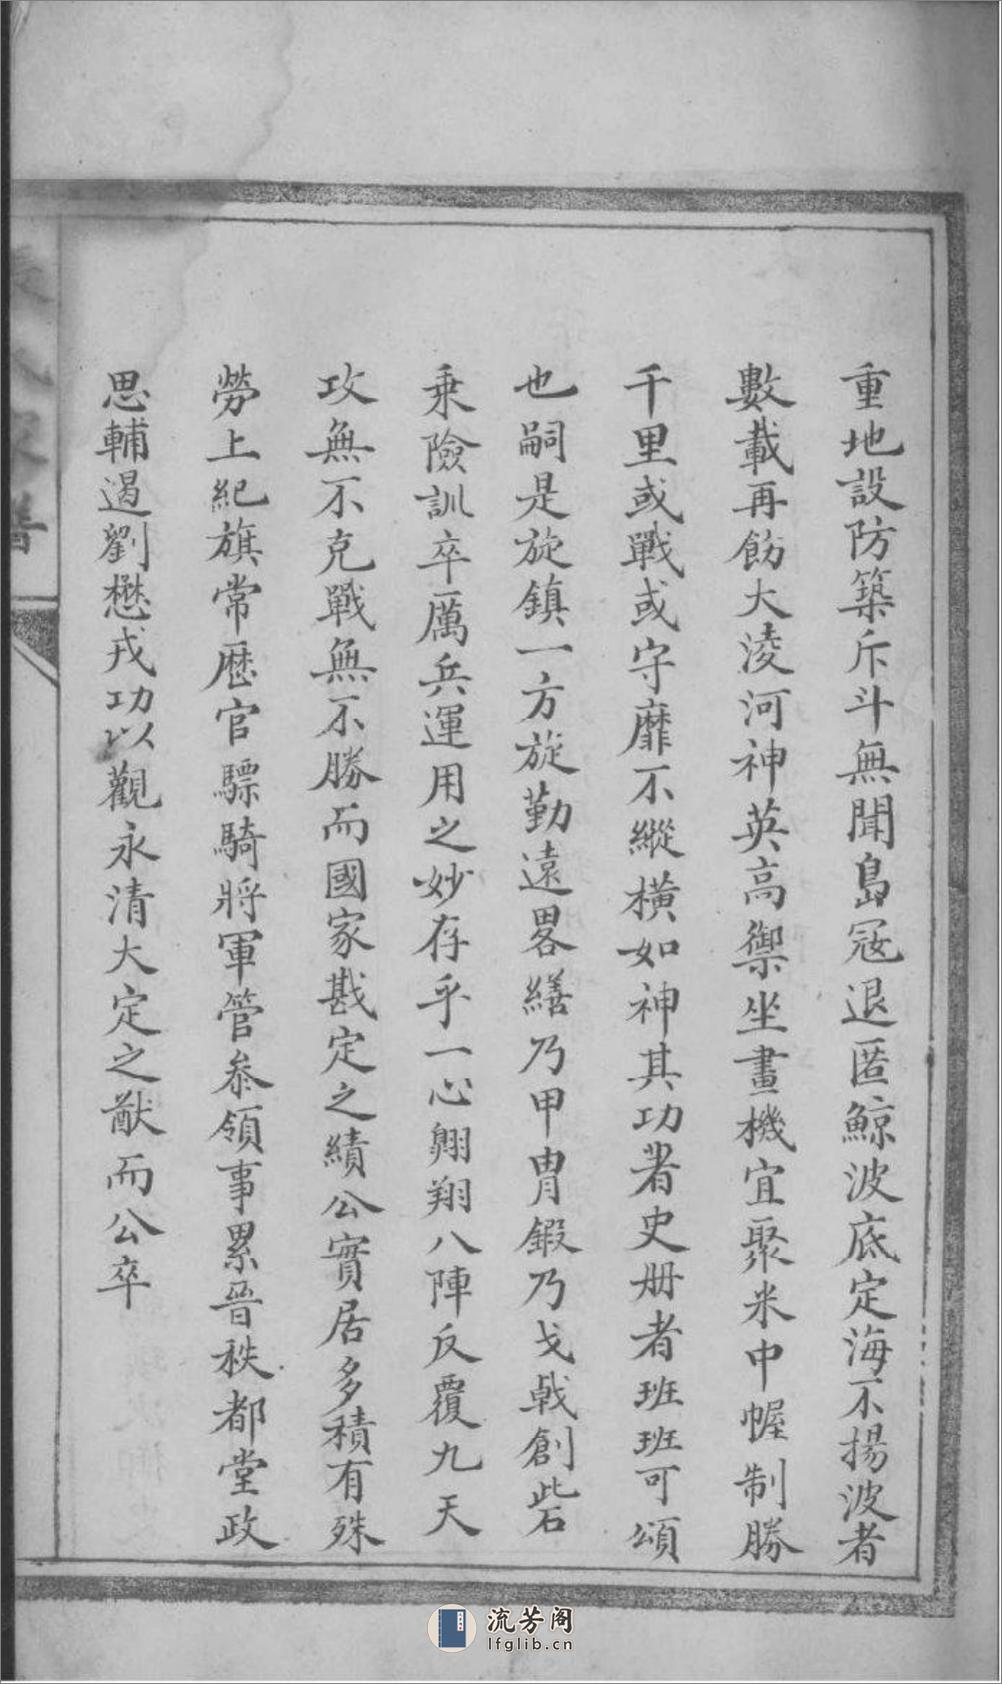 重地設防築斥斗無聞島冦退匿鯨波底定海不揚波者
數載再飭大淩河神英高禦坐畫機宜聚米中幄制勝
千里或戰或守靡不縱橫如神其功著史册者班班可頌
也嗣是旋鎮一方旋勤遠畧繕乃甲冑鍛乃戈戟創砦
乗險訓卒厲兵運用之妙存乎一心翺翔八陣反覆九天
攻無不克戰無不勝而國家戡定之績公實居多積有殊
勞上紀旗常歷官驃騎將軍管叅領事累晉秩都堂政
思輔遏劉懋戎功以觀永清大定之猷而公卒
家譜
流芳阁
lfglib.cn